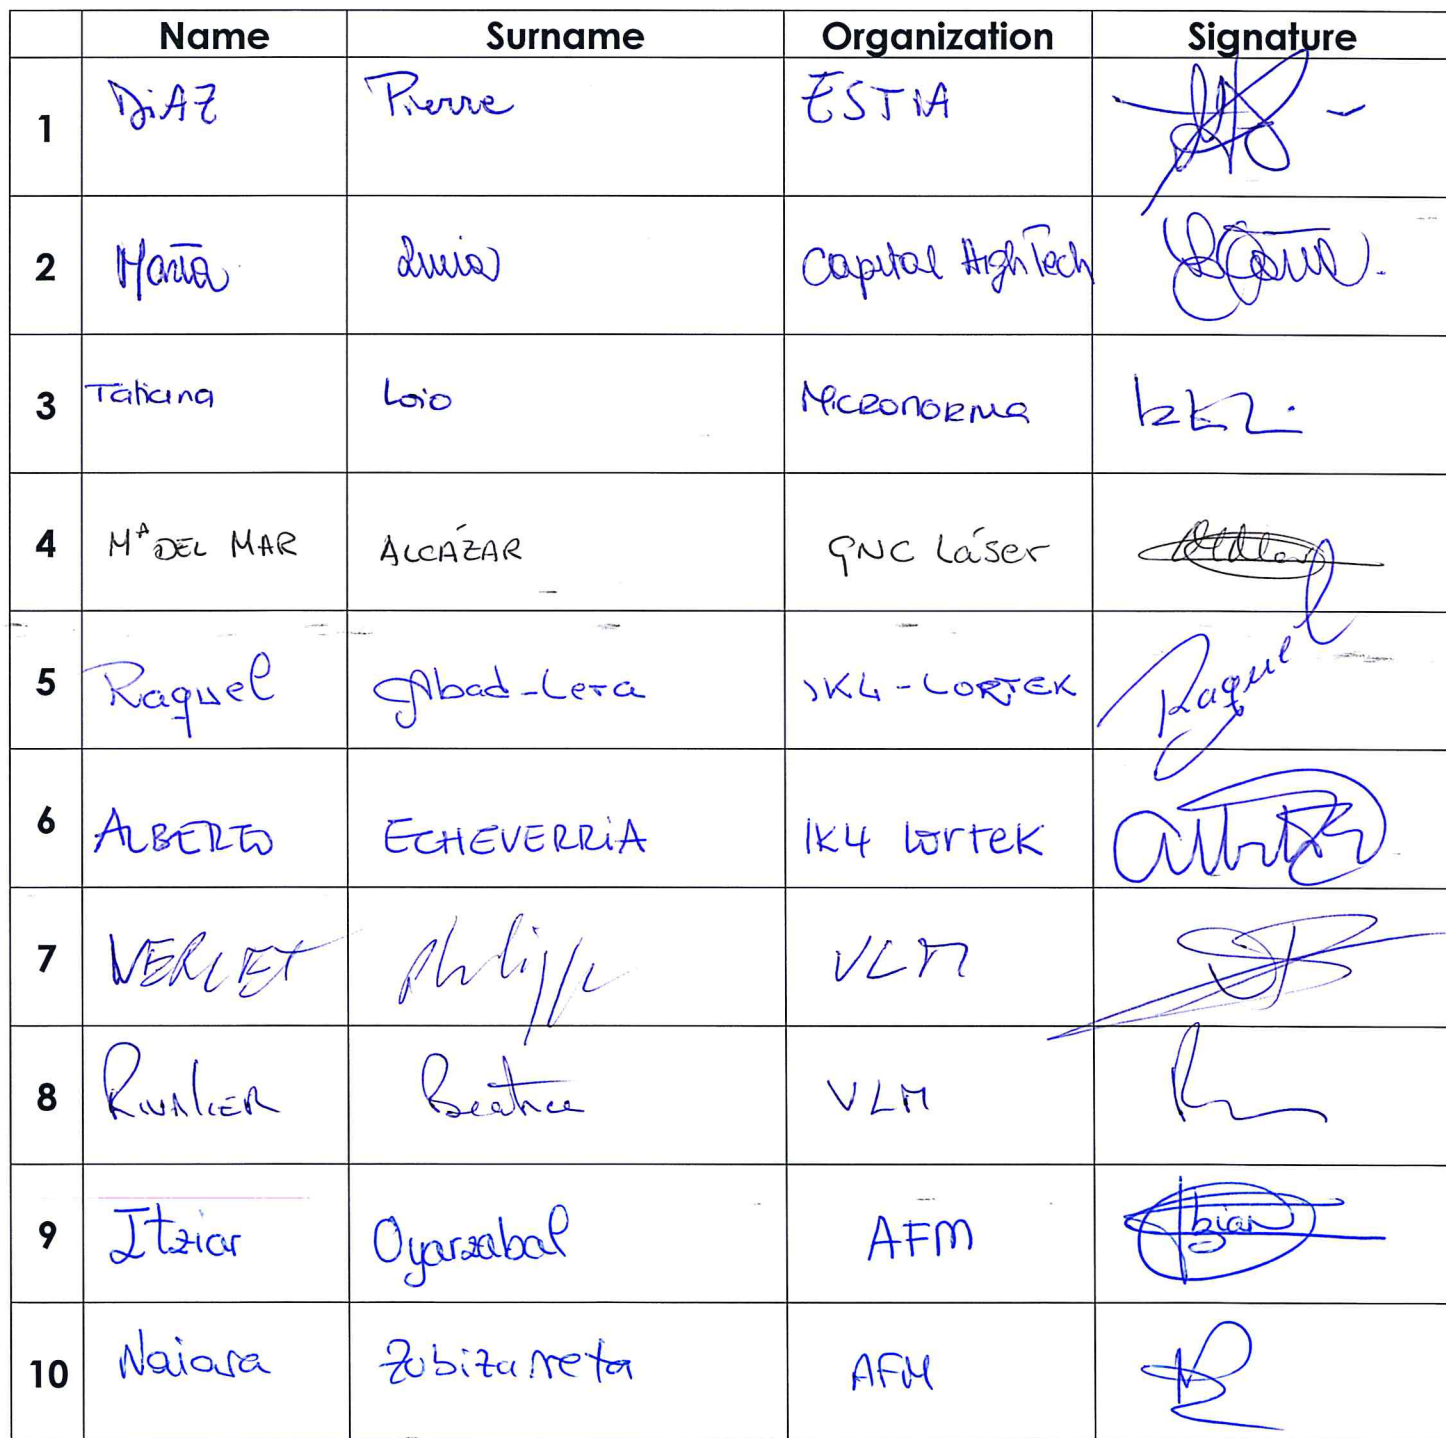 Name Surname Organization Signature
1 DiAZ Pierre ESTIA
2 Maria Luisa Capital HighTech
3 Tatiana Loio Micronorma
4 Mª DEL MAR ALCÁZAR GNC Láser
5 Raquel Abad-Lera IK4-LORTEK Raquel
6 ALBERTO ECHEVERRiA IK4 lortek
7 VERLET Philippe VLM
8 Beatrice VLM
9 Itziar Oyarzabal AFM
10 Naiara Zubizarreta AFM